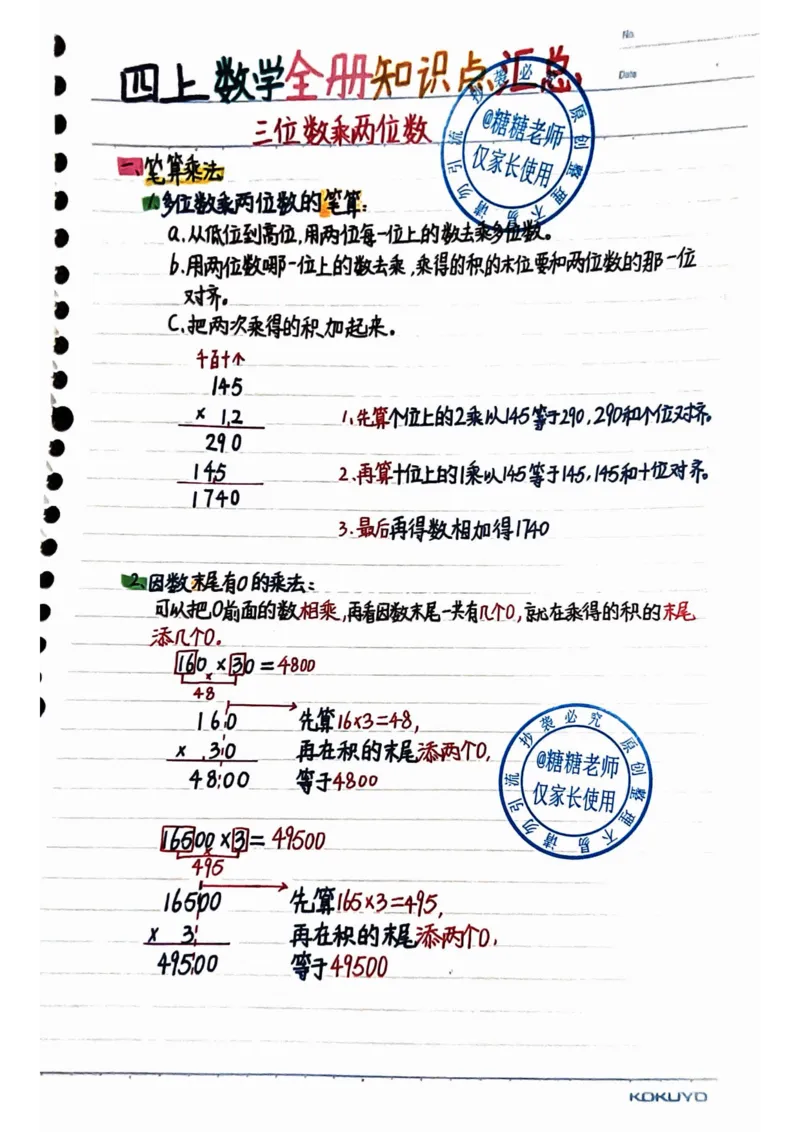 No.
Date
四上数学全册知识点汇总
三位数乘两位数
一、笔算乘法
1.多位数乘两位数的笔算:
a.从低位到高位,用两位每一位上的数去乘多位数。
b.用两位数哪一位上的数去乘,乘得的积的末位要和两位数的那一位
对齐。
C.把两次乘得的积加起来。
千百十个
145
× 12
290
145
1740
1.先算个位上的2乘以145等于290,290和个位对齐。
2.再算十位上的1乘以145等于145,145和十位对齐。
3.最后再得数相加得1740
2.因数末尾有0的乘法:
可以把0前面的数相乘,再看因数末尾一共有几个0,就在乘得的积的末尾
添几个0.
160×30=4800
×
48
160 先算16×3=48,
× 30 再在积的末尾添两个0,
4800 等于4800
16500×3=49500
×
495
16500 先算165×3=495,
× 3 再在积的末尾添两个0,
49500 等于49500
抄袭必究 原创整理不易 请勿引流
@糖糖老师
仅家长使用
抄袭必究 原创整理不易 请勿引流
@糖糖老师
仅家长使用
KOKUYO